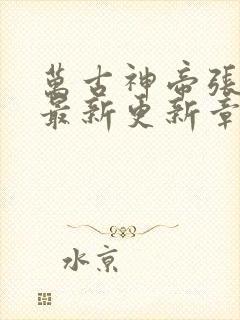 萬古神帝張
最新更新章
水京